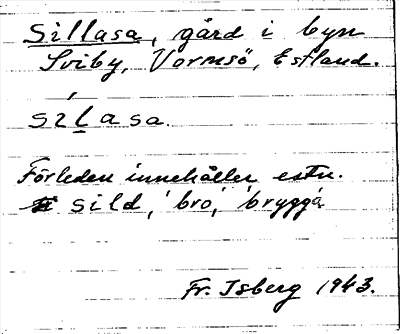 Sillasa, gård i byn
Sviby, Vormsö, Estland.
sílasa.
Förleden innehåller estn.
sild, 'bro', 'brygga'
Fr. Isberg 1943.